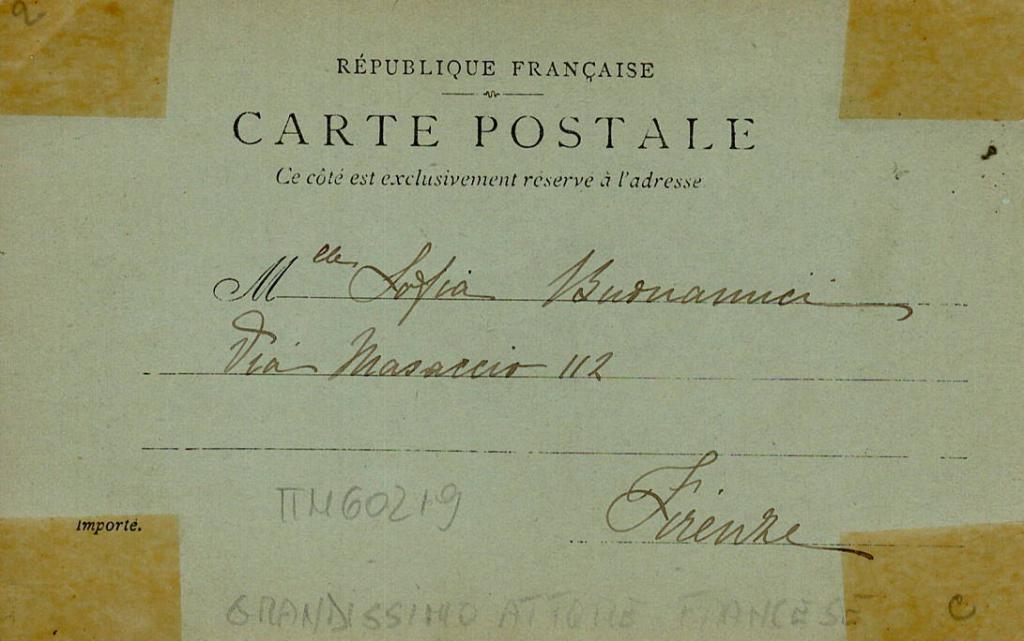 2
RÉPUBLIQUE FRANÇAISE
CARTE POSTALE
Ce côté est exclusivement réservé à l'adresse
Mlle Sofia Buonamici
Via Masaccio 112
Importé.
Firenze
GRANDISSIMO ATTORE FRANCESE
C